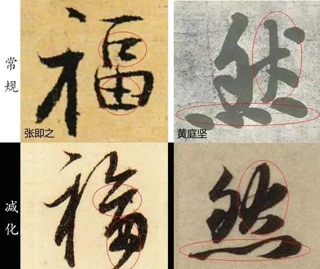 常规
福
张即之
然
黄庭坚
减化
福
然